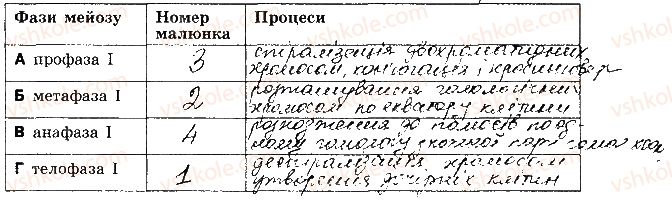 Фази мейозу Номер малюнка Процеси
А профаза І 3 спіралізація двохроматидних
хромосом, кон'югація і кросинговер
Б метафаза І 2 розташування гомологічних
хромосом по екватору клітини
В анафаза І 4 розходження до полюсів по од-
ному гомологу з кожної пари хромосом
Г телофаза І 1 деспіралізація хромосом
утворення дочірніх клітин